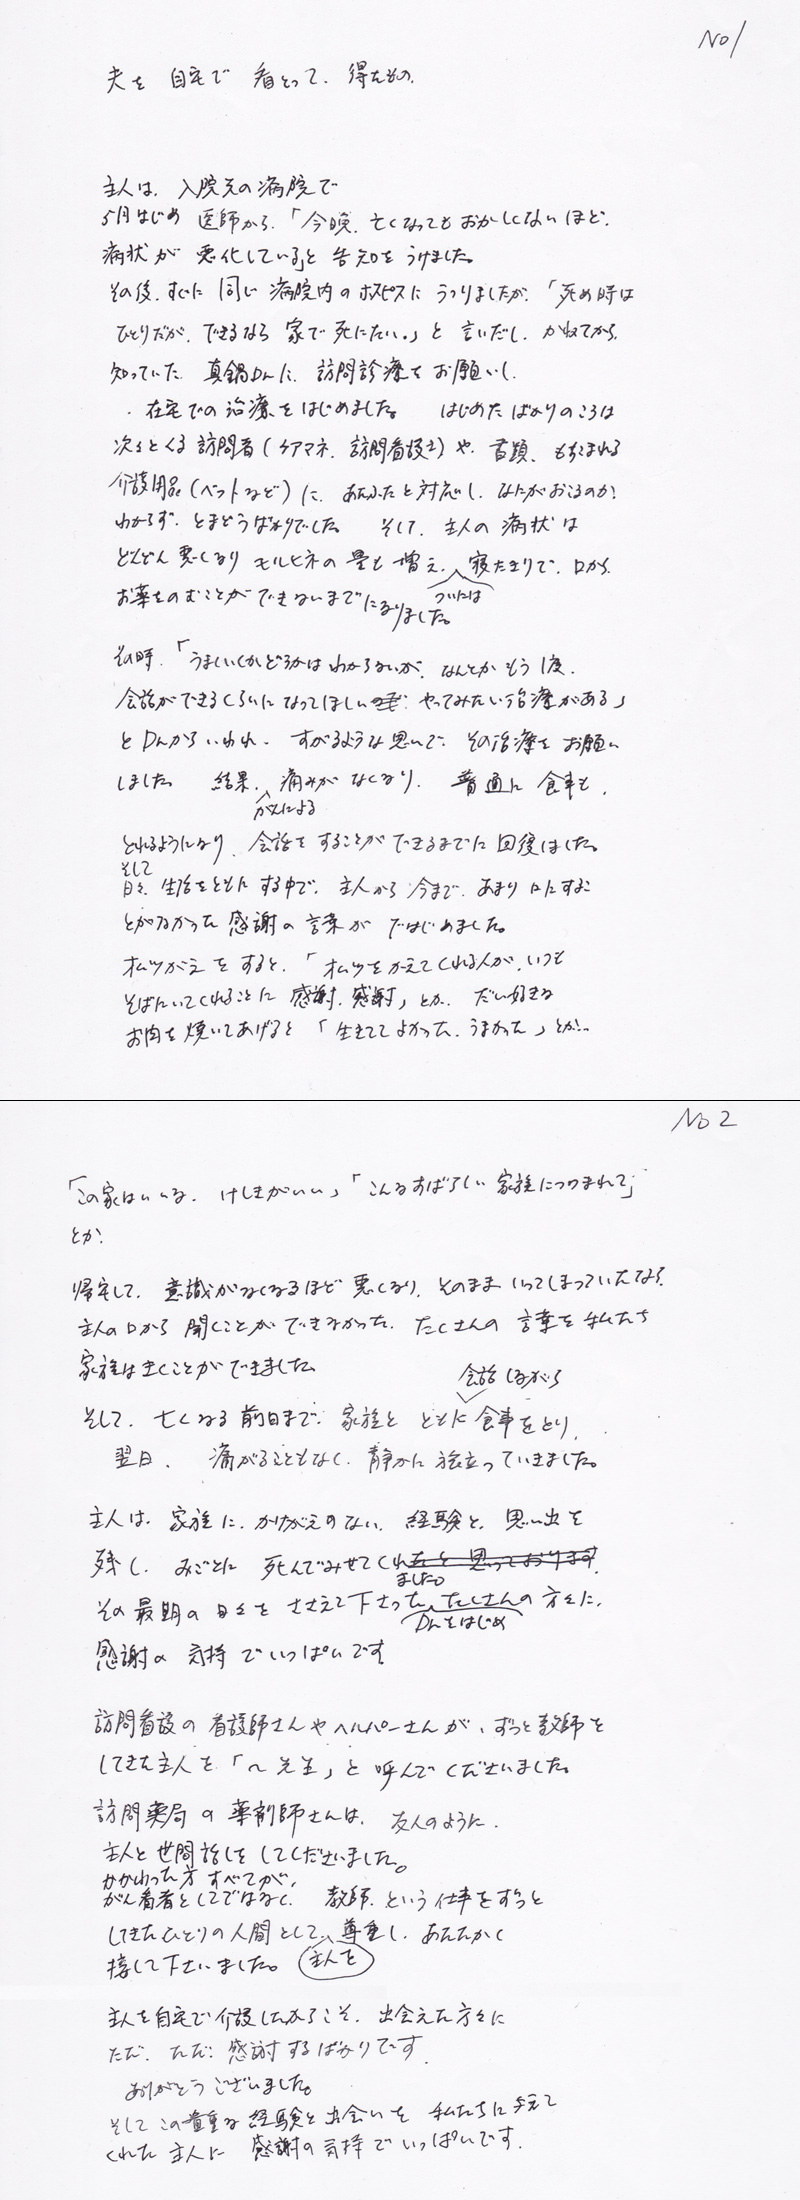 No1
夫を 自宅で 看とって、得たもの。
主人は、入院先の病院で
5月はじめ 医師から、「今晩、亡くなってもおかしくないほど、
病状が 悪化している」と 告知を うけました。
その後、すぐに 同じ 病院内の ホスピスに うつりましたが、「死ぬ時は
ひとりだが、できるなら 家で 死にたい。」と 言いだし、かねてから、
知っていた 真鍋Drに、訪問診療を お願いし、
、在宅での 治療を はじめました。 はじめた ばかりのころは
次々とくる 訪問者(ケアマネ、訪問看護士)や、書類、もちこまれる
介護用品(ベットなど)に、あたふたと対応し、なにがおこるのか?
わからず、とまどうばかりでした。 そして、主人の 病状は
どんどん 悪くなり モルヒネの 量も 増え、寝たきりで、口から、
ついには
お薬をのむことが できないまでになりました。
その時、「うまくいくかどうかは わからないが、なんとか もう1度、
会話ができるくらいに なってほしい やってみたい治療がある」
と Drから いわれ、 すがるような思いで、その治療を お願い
しました。 結果、痛みが なくなり、 普通に 食事も、
がんによる
とれるようになり、会話を することが できるまでに 回復しました。
そして
日々、生活をともに する中で、主人から 今まで、あまり 口にするこ
とがなかった 感謝の 言葉が ではじめました。
オムツがえ を すると、「オムツを かえてくれる人が、いつも
そばにいてくれることに 感謝、感謝」とか、だい好きな
お肉を 焼いてあげると 「生きてて よかった、うまかった」とか…
No2
「この家はいいな、けしきがいい」「こんなすばらしい 家族につつまれて」
とか、
帰宅して、意識がなくなるほど 悪くなり、そのまま いってしまっていたなら、
主人の口から 聞くことが できなかった、たくさんの 言葉を 私たち
家族はきくことができました。
会話しながら
そして、亡くなる 前日まで、家族と ともに 食事をとり、
翌日、 痛がることもなく、静かに 旅立っていきました。
主人は、家族に、かけがえのない、経験と、思い出を
残し、みごとに 死んでみせてくれたと 思っております。
ました。
その 最期の 日々を ささえて下さった、たくさんの 方々に、
Drをはじめ
感謝の 気持 で いっぱいです
訪問看護の 看護師さんや ヘルパーさんが、ずっと教師を
してきた主人を 「~先生」と 呼んで くださいました。
訪問薬局 の 薬剤師さんは、 友人のように、
主人と 世間話しを してくださいました。
かかわった方 すべてが、
がん患者としてではなく、 教師、という 仕事をずっと
してきたひとりの 人間として、尊重し、あたたかく
接して下さいました。 主人を
主人を自宅で介護したからこそ、出会えた方々に
ただ、ただ、感謝するばかりです、
ありがとう ございました。
そして この貴重な 経験と出会いを 私たちに与えて
くれた 主人に 感謝の 気持 で いっぱいです。